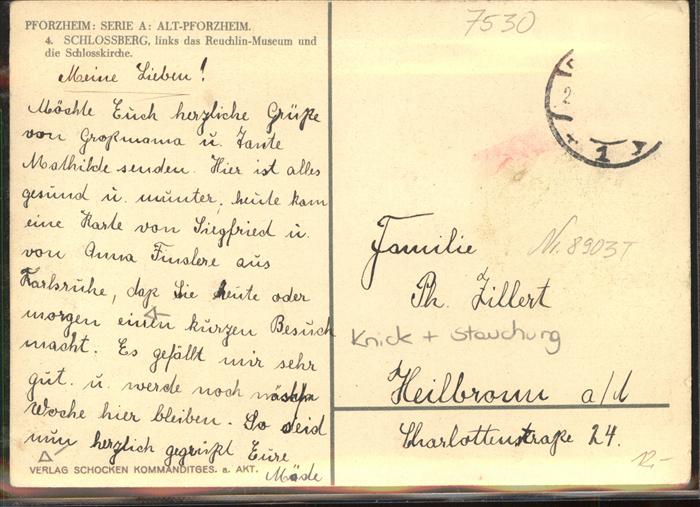 PFORZHEIM: SERIE A: ALT-PFORZHEIM.
4. SCHLOSSBERG, links das Reuchlin-Museum und
die Schlosskirche.
Meine Lieben!
Möchte Euch herzliche Grüße
von Großmama u. Tante
Mathilde senden. Hier ist alles
gesund u. munter, heute kam
eine Karte von Siegfried u.
von Anna Finslere aus
Karlsruhe, daß sie heute oder
morgen einen kurzen Besuch
macht. Es gefällt mir sehr
gut. u. werde noch
Woche hier bleiben. So seid
nun herzlich gegrüßt Eure
VERLAG SCHOCKEN KOMMANDITGES. a. AKT.
7530
1
Familie
Nr. 8903T
Ph. Zillert
Knick + Stauchung
Heilbronn a/d
Charlottenstraße 24.
12.-